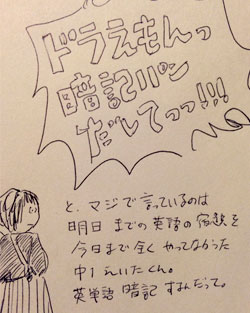 ドラえもんっ
暗記パン
だしてっっ!!!
と、マジで言っているのは
明日までの英語の宿題を
今日まで全くやってなかった
中1 えいたくん。
英単語 暗記 すんだって。